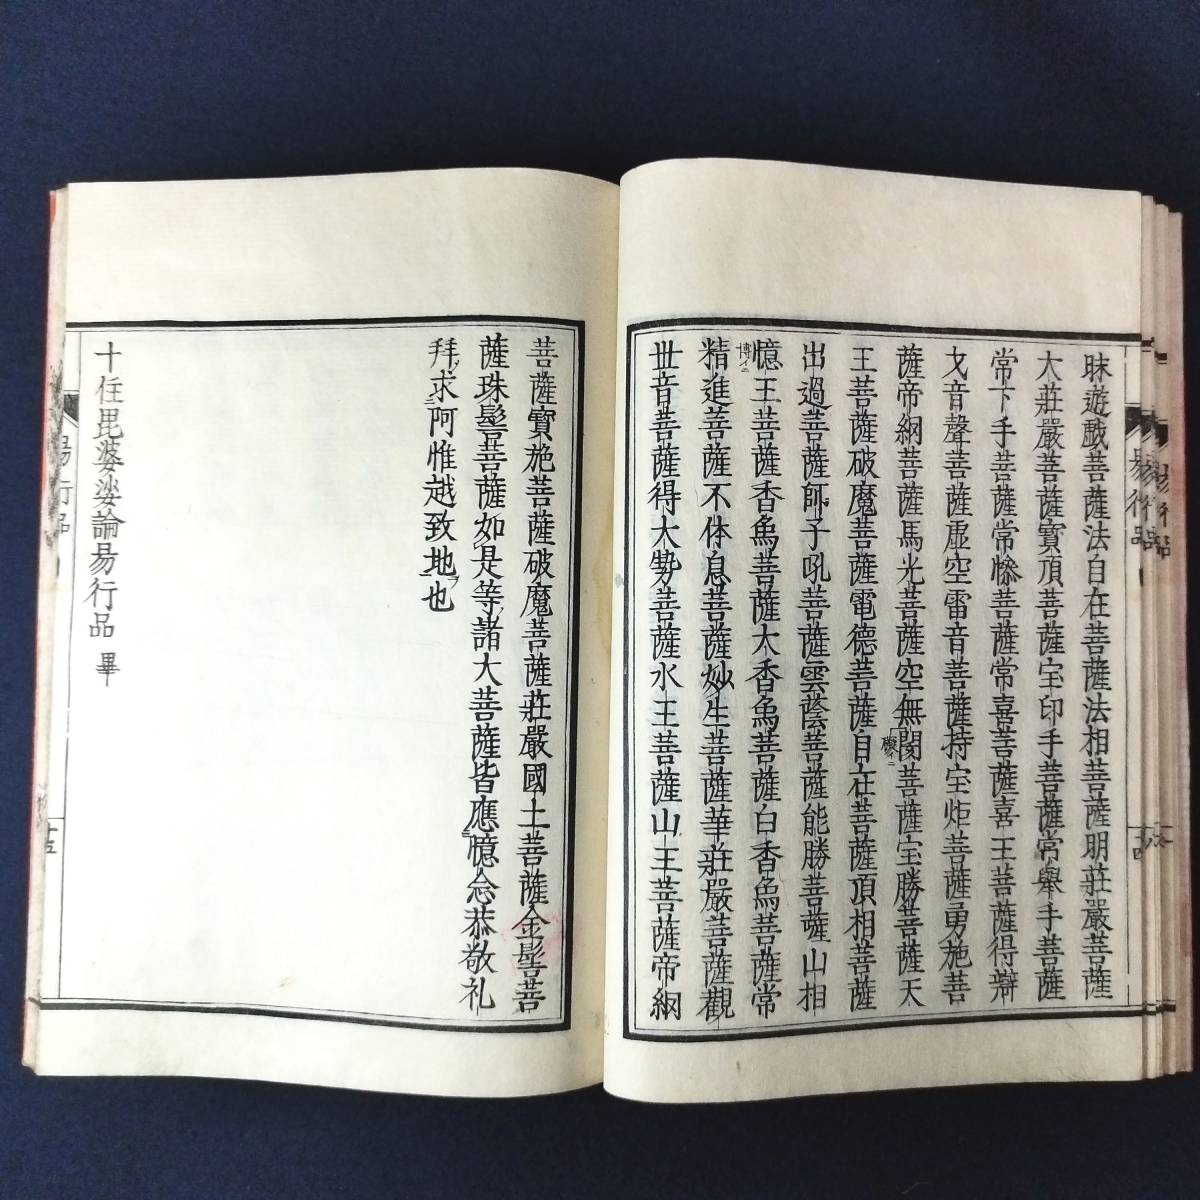 昧遊戲菩薩法自在菩薩法相菩薩明莊嚴菩薩
大莊嚴菩薩寶頂菩薩宝印手菩薩常舉手菩薩
常下手菩薩常慘菩薩常喜菩薩喜王菩薩得辯
戈音聲菩薩虛空雷音菩薩持宝炬菩薩勇施菩
薩帝網菩薩馬光菩薩空無閡菩薩宝勝菩薩天
王菩薩破魔菩薩電德菩薩自在菩薩頂相菩薩
出過菩薩師子吼菩薩雲蔭菩薩能勝菩薩山相
憶王菩薩香鳥菩薩大香鳥菩薩白香鳥菩薩常
精進菩薩不休息菩薩妙生菩薩華莊嚴菩薩觀
世音菩薩得大勢菩薩水王菩薩山王菩薩帝網
菩薩寶施菩薩破魔菩薩莊嚴國土菩薩金髻菩
薩珠髻菩薩如是等諸大菩薩皆應憶念恭敬礼
拜求阿惟越致地也
十住毘婆娑論易行品 畢
易行品
十五
易行品
十四